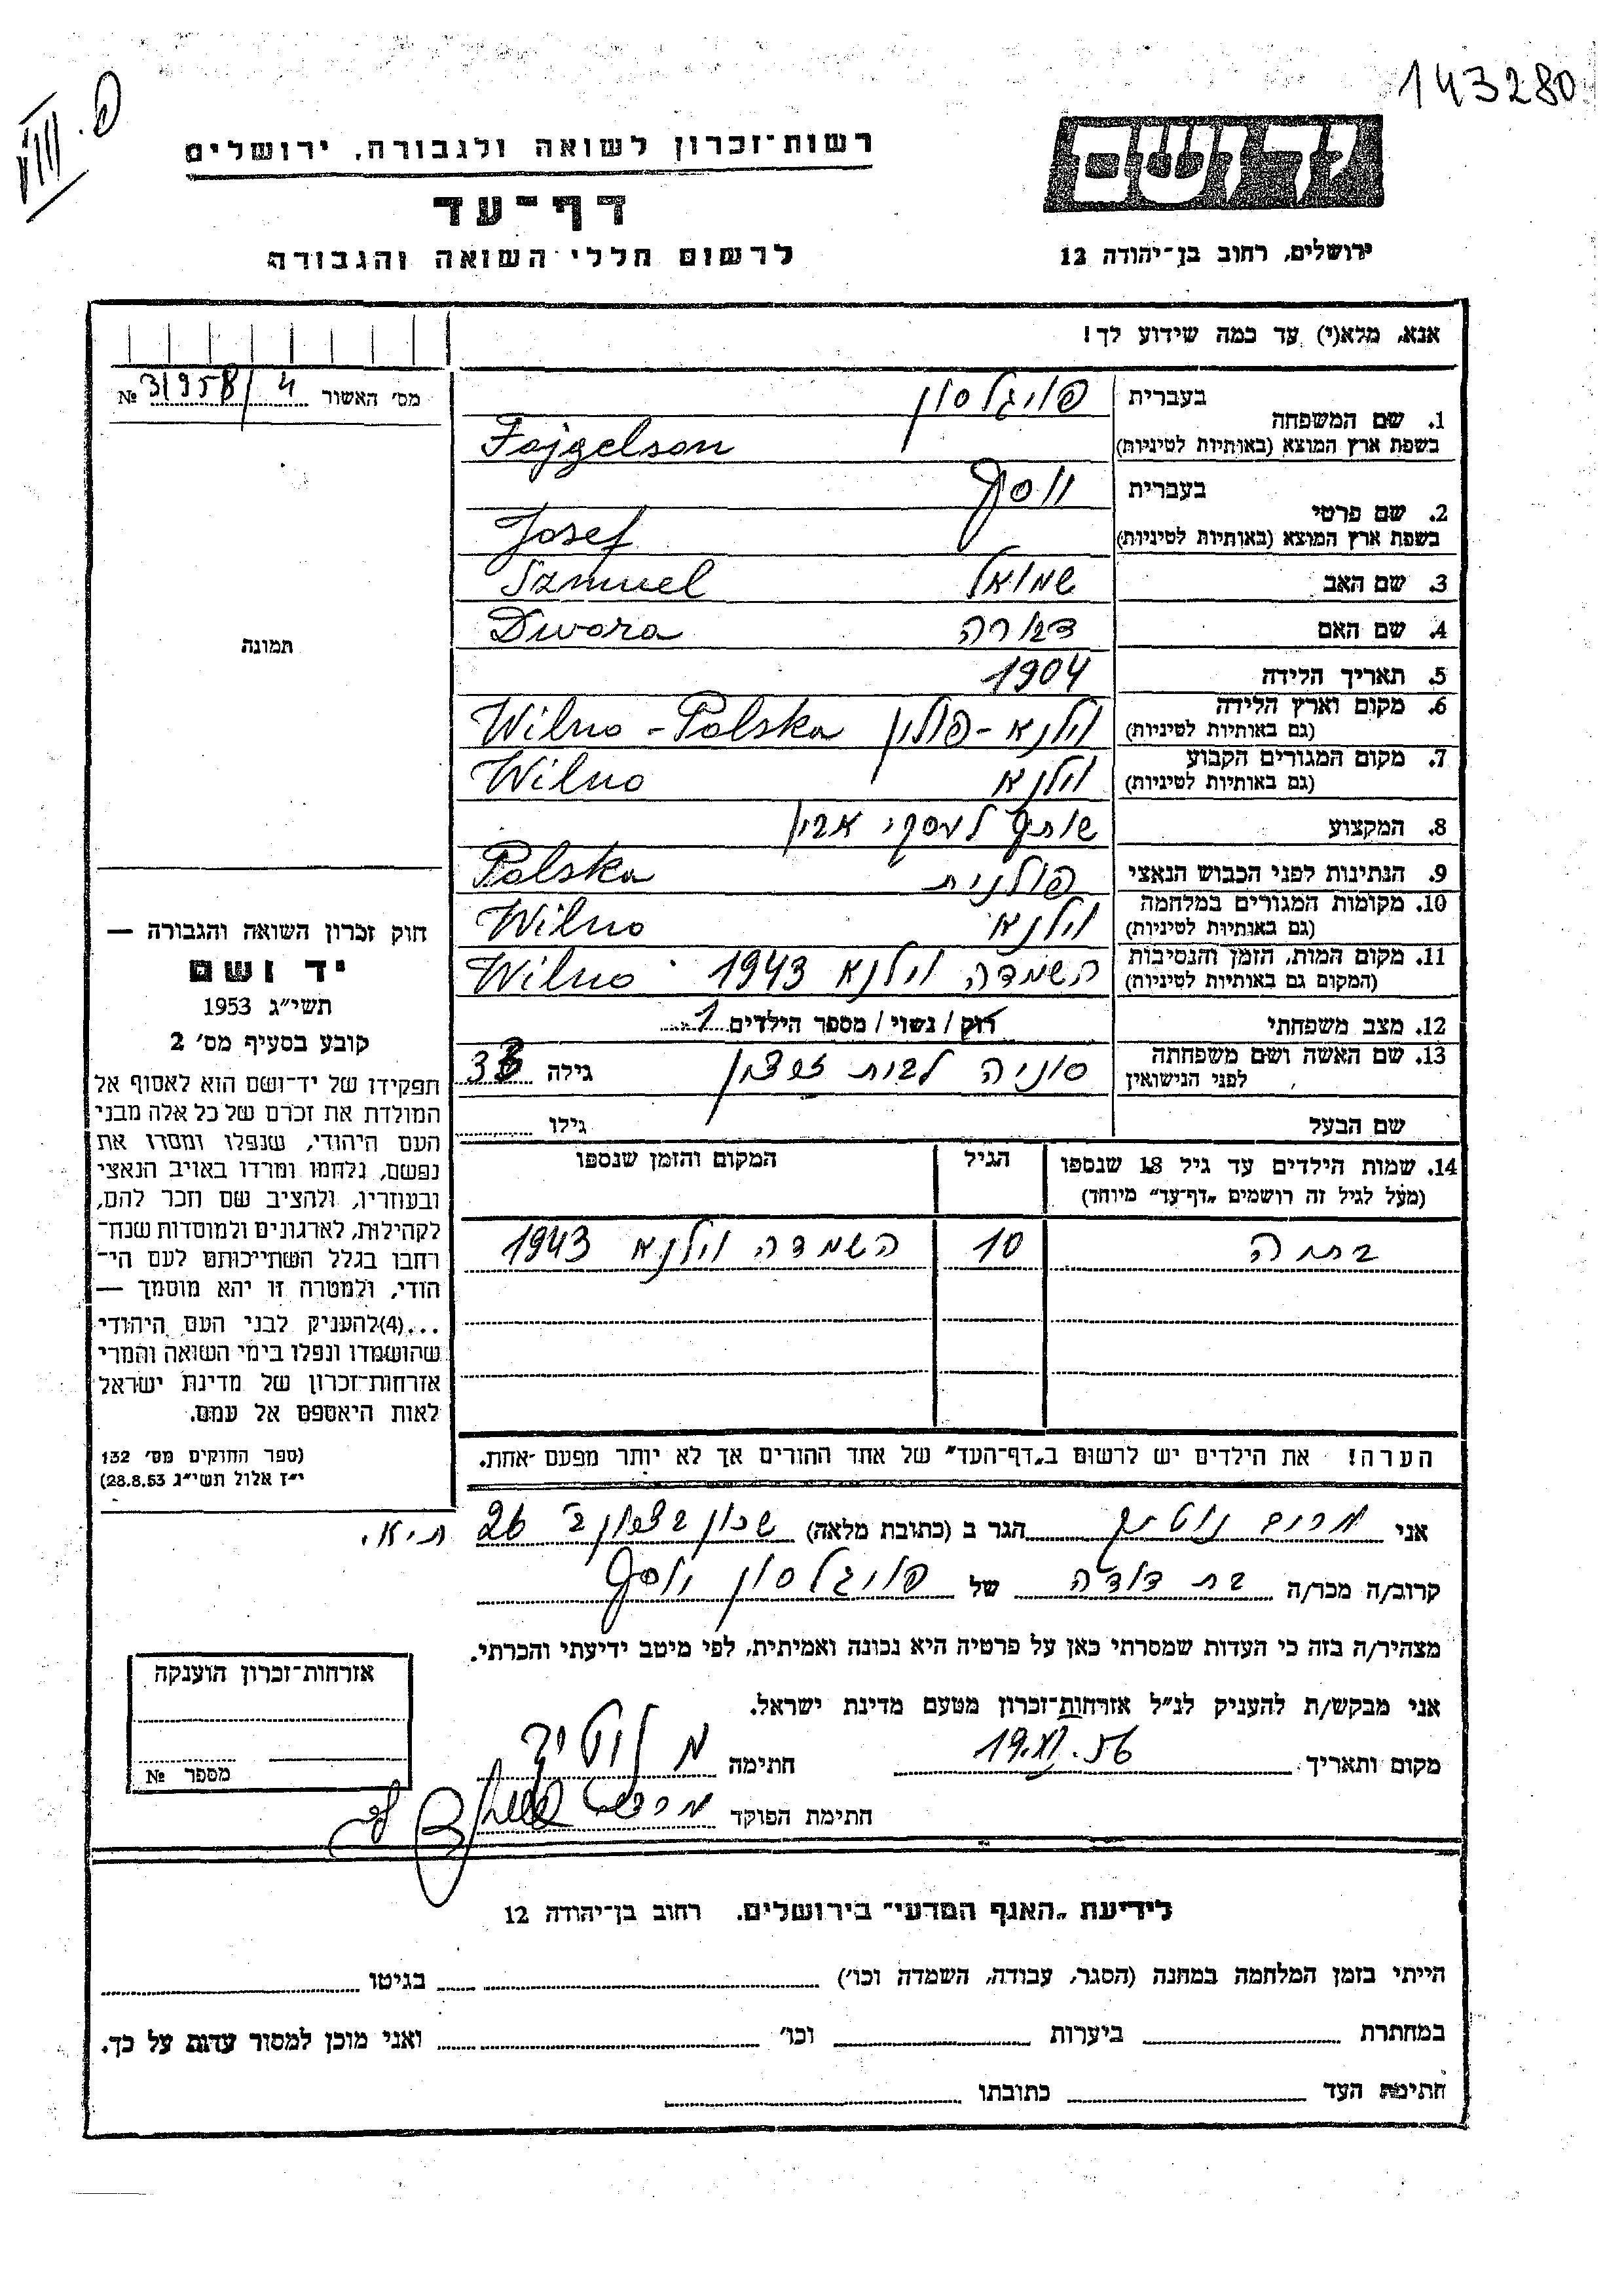 143280
פ. VIII
יד ושם
רשות־זכרון לשואה ולגבורה, ירושלים
דף־עד
לרשום חללי השואה והגבורה
ירושלים, רחוב בן־יהודה 12
אנא, מלא(י) עד כמה שידוע לך!
מס׳ האשור 31958/4 №
תמונה
1. שם המשפחה
בעברית פויגלסון
בשפת ארץ המוצא (באותיות לטיניות) Fajgelson
2. שם פרטי
בעברית יוסף
בשפת ארץ המוצא (באותיות לטיניות) Josef
3. שם האב שמואל Szmuel
4. שם האם דבורה Dwora
5. תאריך הלידה 1904
6. מקום וארץ הלידה וילנא - פולין Wilno - Polska
(גם באותיות לטיניות)
7. מקום המגורים הקבוע וילנא Wilno
(גם באותיות לטיניות)
8. המקצוע שותף למסקי אביו
9. הנתינות לפני הכבוש הנאצי פולנית Polska
10. מקומות המגורים במלחמה וילנא Wilno
(גם באותיות לטיניות)
11. מקום המות, הזמן והנסיבות השמדה וילנא 1943 Wilno
(המקום גם באותיות לטיניות)
12. מצב משפחתי רוק / נשוי / מספר הילדים 1
13. שם האשה ושם משפחתה סוניה לבית גילה 33
לפני הנישואין
שם הבעל גילו
14. שמות הילדים עד גיל 18 שנספו הגיל המקום והזמן שנספו
(מעל לגיל זה רושמים „דף־עד״ מיוחד)
בתה 10 השמדה וילנא 1943
הערה! את הילדים יש לרשום ב„דף־העד״ של אחד ההורים אך לא יותר מפעם אחת.
חוק זכרון השואה והגבורה —
יד ושם
תשי״ג 1953
קובע בסעיף מס׳ 2
תפקידו של יד־ושם הוא לאסוף אל
המולדת את זכרם של כל אלה מבני
העם היהודי, שנפלו ומסרו את
נפשם, נלחמו ומרדו באויב הנאצי
ובעוזריו, ולהציב שם וזכר להם,
לקהילות, לארגונים ולמוסדות שנח־
רחבו בגלל השתייכותם לעם הי־
הודי, ולמטרה זו יהא מוסמך —
...(4)להעניק לבני העם היהודי
שהושמדו ונפלו בימי השואה והמרי
אזרחות־זכרון של מדינת ישראל
לאות היאספם אל עמם.
(ספר החוקים מס׳ 132
י״ז אלול תשי״ג 28.8.53)
אני מרים הגר ב (כתובת מלאה) שכון ב׳ 26 ת.א.
קרוב/ה מכר/ה בת דודה של פויגלסון יוסף
מצהיר/ה בזה כי העדות שמסרתי כאן על פרטיה היא נכונה ואמיתית, לפי מיטב ידיעתי והכרתי.
אני מבקש/ת להעניק לנ״ל אזרחות־זכרון מטעם מדינת ישראל.
מקום ותאריך 19.VI.56 חתימה
חתימת הפוקד
אזרחות־זכרון הוענקה
מספר №
לידיעת „האגף המדעי״ בירושלים, רחוב בן־יהודה 12
הייתי בזמן המלחמה במחנה (הסגר, עבודה, השמדה וכו׳) בגיטו
במחתרת ביערות וכו׳ ואני מוכן למסור עדות על כך.
חתימת העד כתובתו